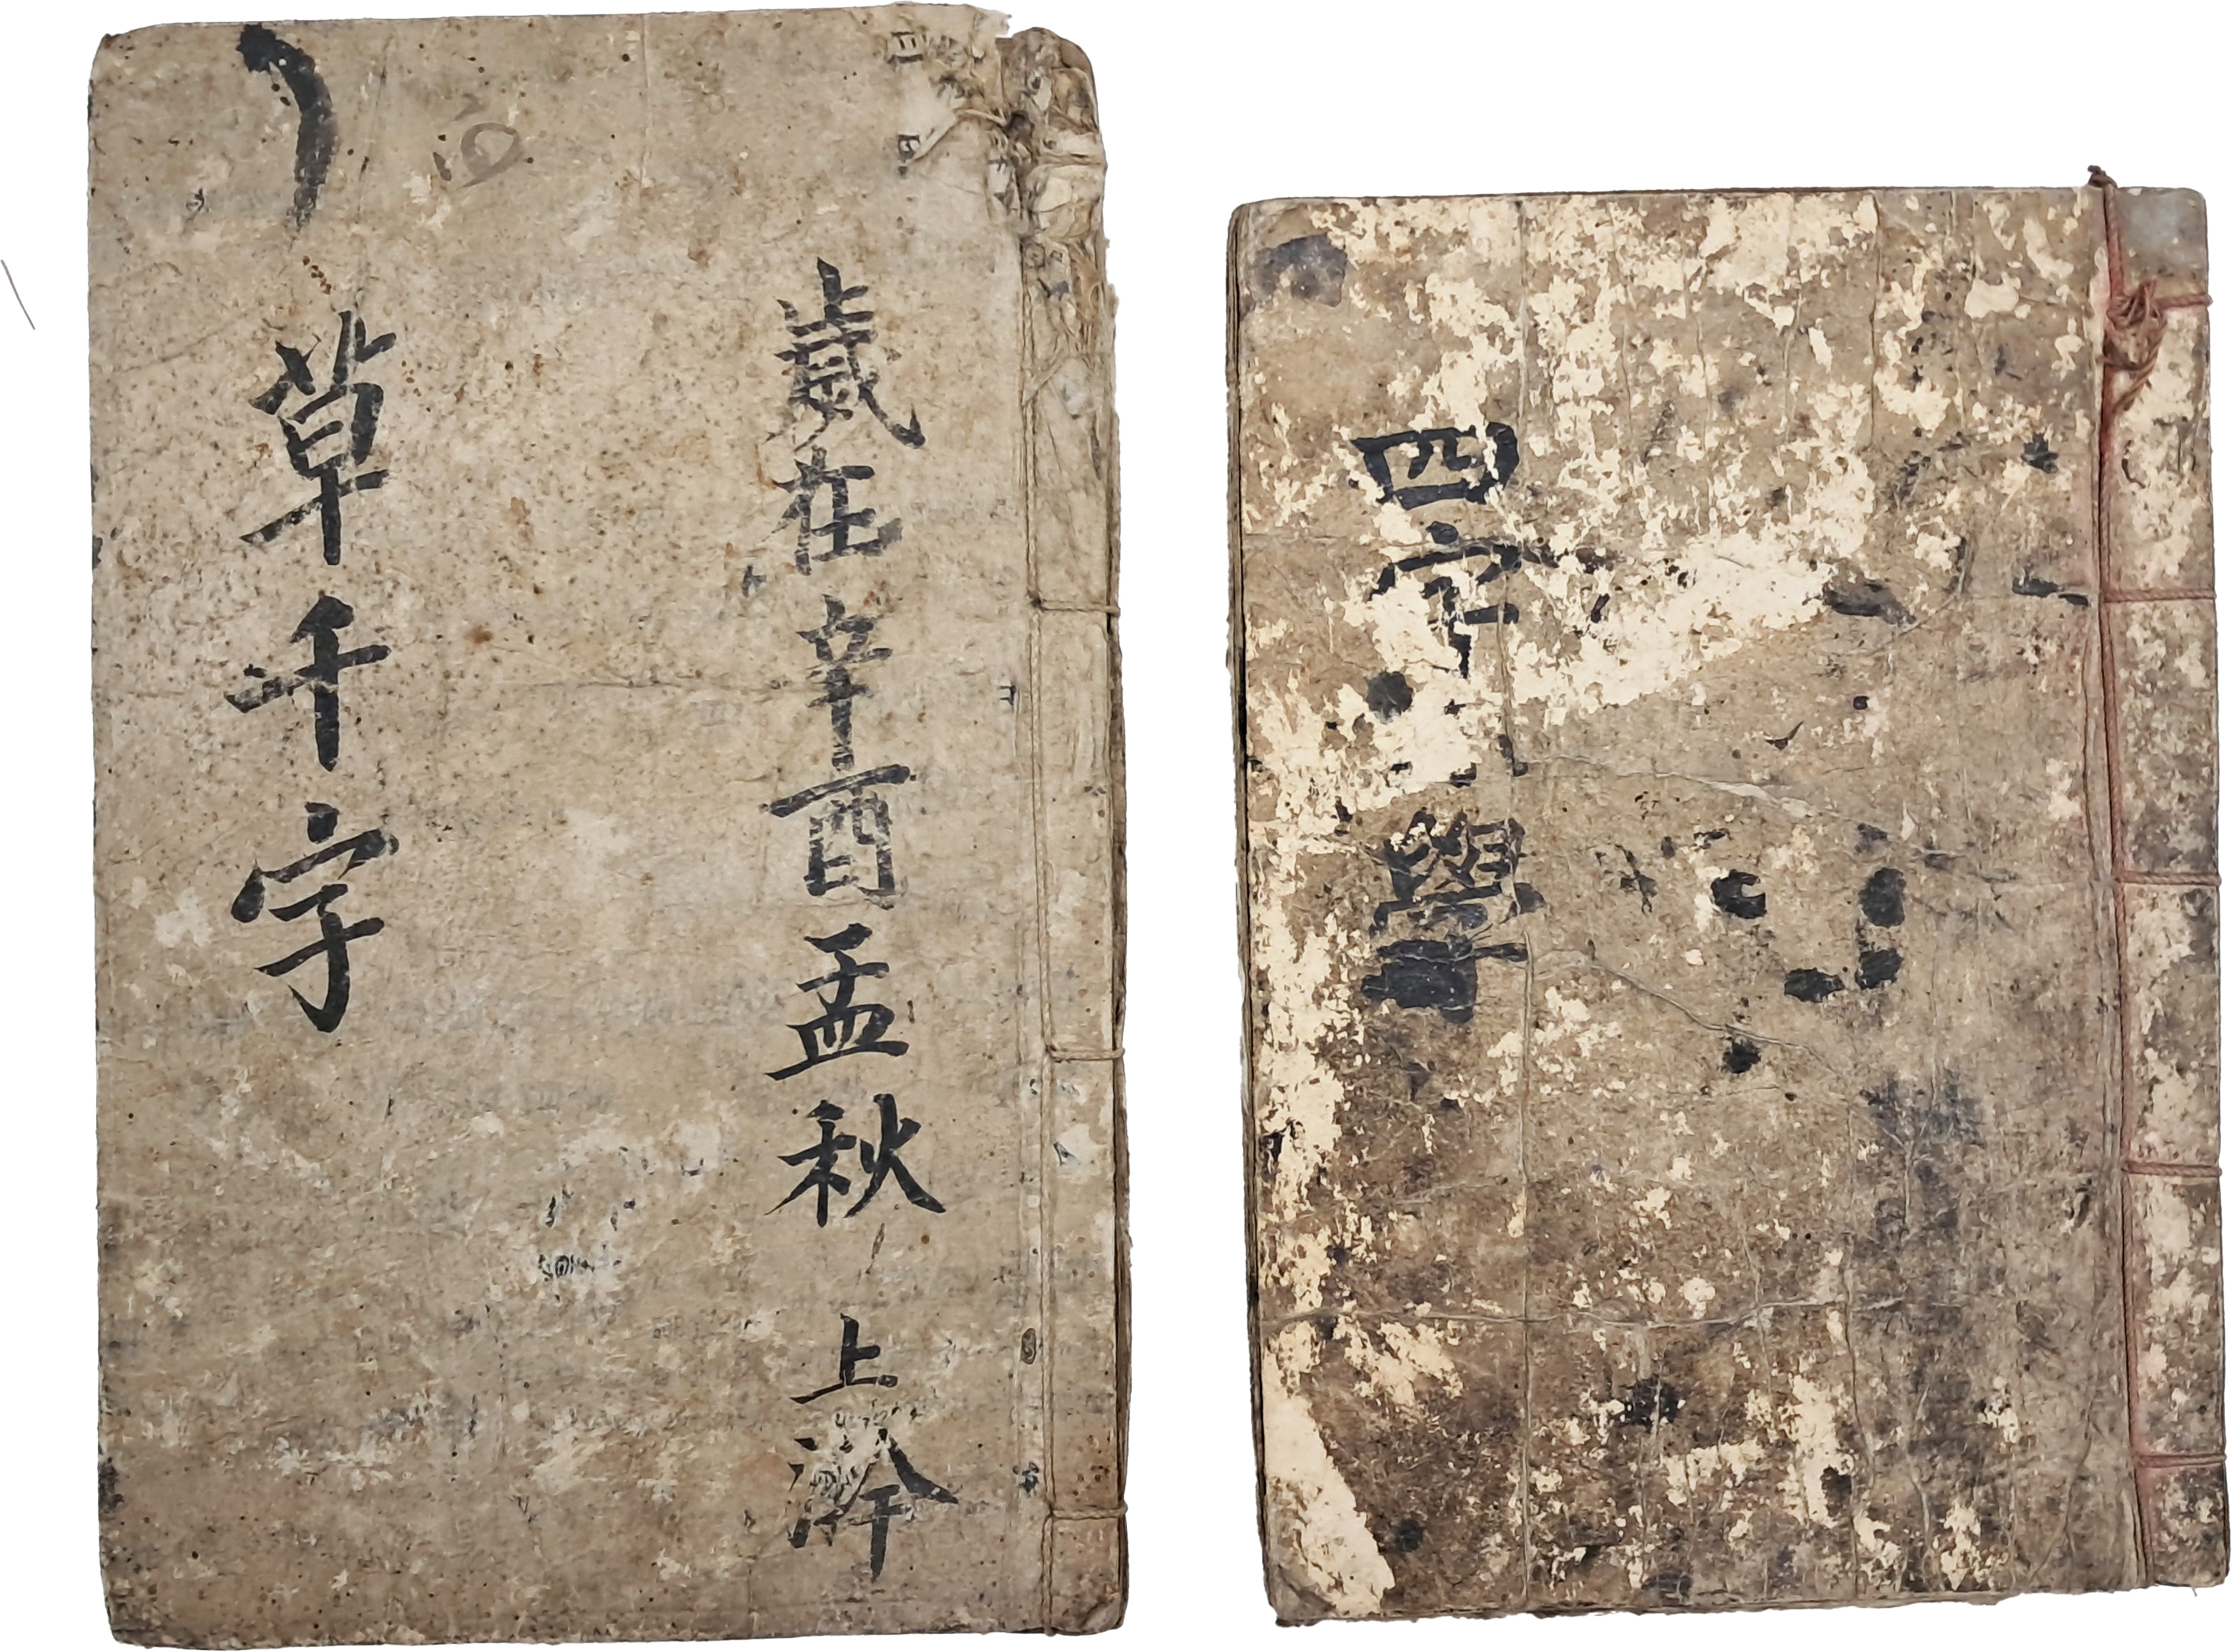 歲在辛酉孟秋 上澣
草千字
四字 學